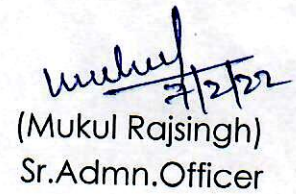 7/2/22
(Mukul Rajsingh)
Sr.Admn.Officer